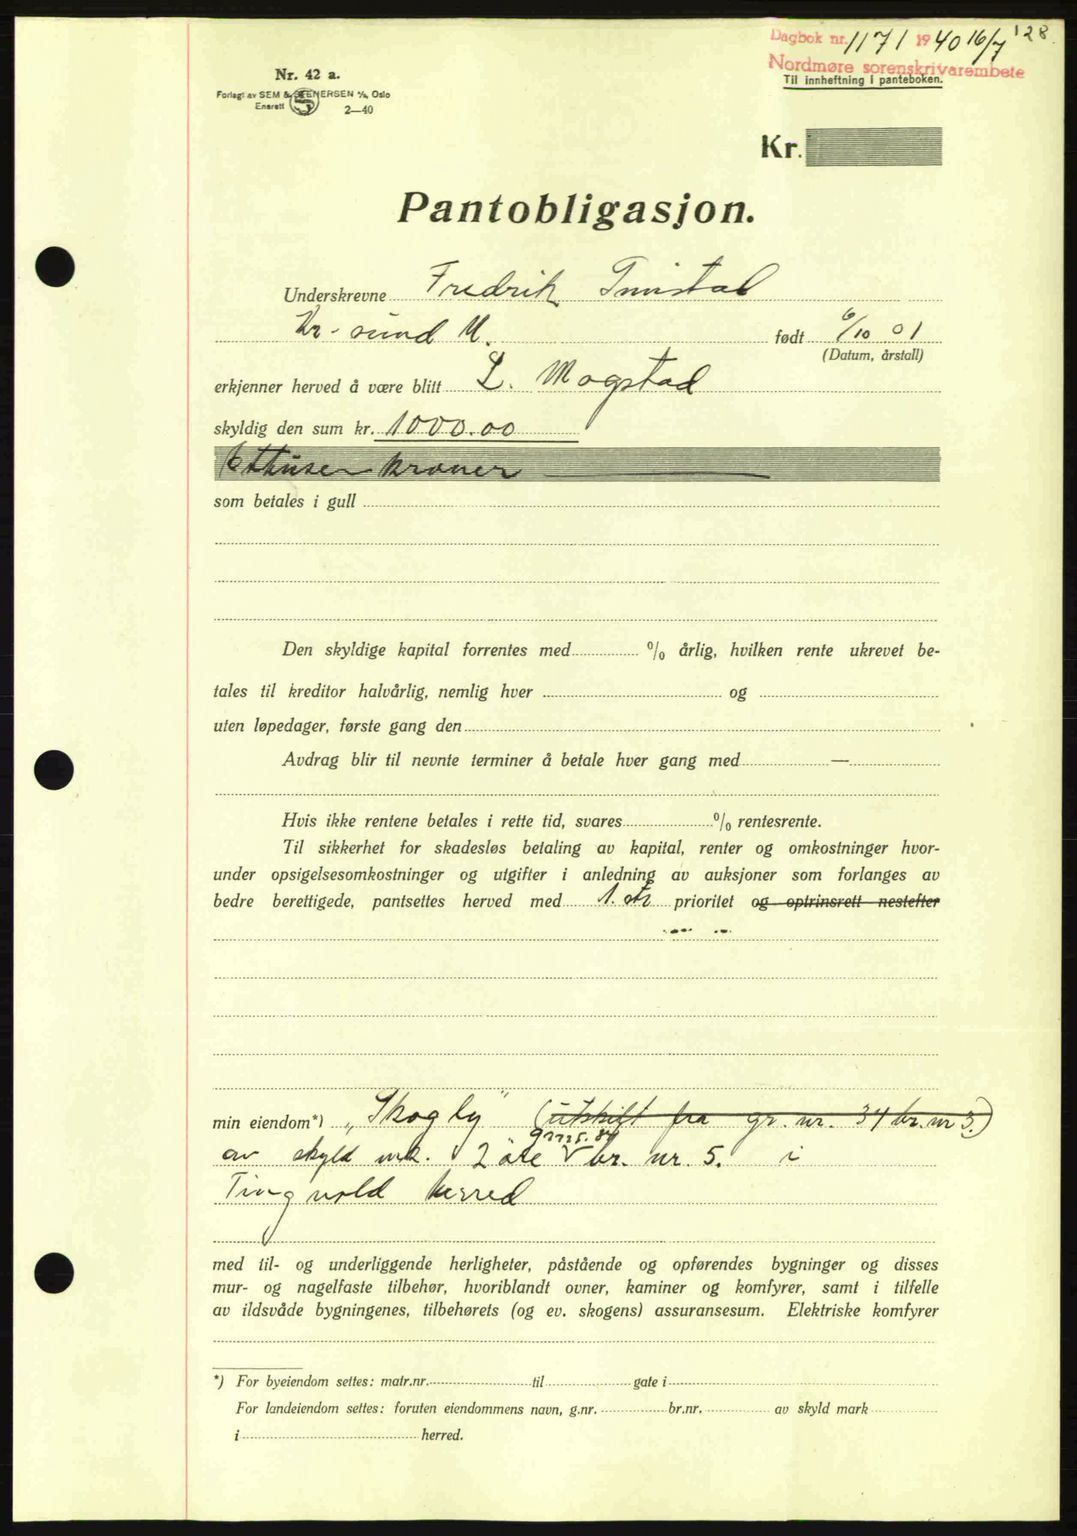 128.
Dagbok nr. 1171 1940 16/7
Nordmøre sorenskrivarembete
Til innheftning i panteboken.
Nr. 42 a.
Forlagt av SEM & STENERSEN A/S, Oslo
Enerett S 2—40
Kr.
Pantobligasjon.
Underskrevne Fredrik
Kr-sund N. født 6/10 01
(Datum, årstall)
erkjenner herved å være blitt L. Mogstad
skyldig den sum kr. 1000.00
Ettusen kroner
som betales i gull
Den skyldige kapital forrentes med % årlig, hvilken rente ukrevet be-
tales til kreditor halvårlig, nemlig hver og
uten løpedager, første gang den
Avdrag blir til nevnte terminer å betale hver gang med —
Hvis ikke rentene betales i rette tid, svares % rentesrente.
Til sikkerhet for skadesløs betaling av kapital, renter og omkostninger hvor-
under opsigelsesomkostninger og utgifter i anledning av auksjoner som forlanges av
bedre berettigede, pantsettes herved med 1. ste prioritet og optrinsrett nestefter
min eiendom*) „Skogly" (utskilt fra gr. nr. 34 br. nr 3.)
av skyld mk. 2 øre br. nr. 5. i
Tingvold herred
med til- og underliggende herligheter, påstående og opførendes bygninger og disses
mur- og nagelfaste tilbehør, hvoriblandt ovner, kaminer og komfyrer, samt i tilfelle
av ildsvåde bygningenes, tilbehørets (og ev. skogens) assuransesum. Elektriske komfyrer
*) For byeiendom settes: matr.nr. til gate i
For landeiendom settes: foruten eiendommens navn, g.nr. br.nr. av skyld mark
i herred.